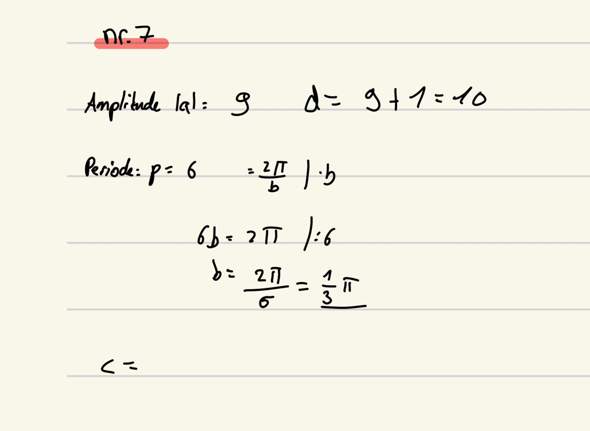 nr. 7
Amplitude |a| = 9 d = 9 + 1 = 10
Periode: p = 6 = 2π/b | · b
6b = 2π | : 6
b = 2π/6 = 1/3 π
c =